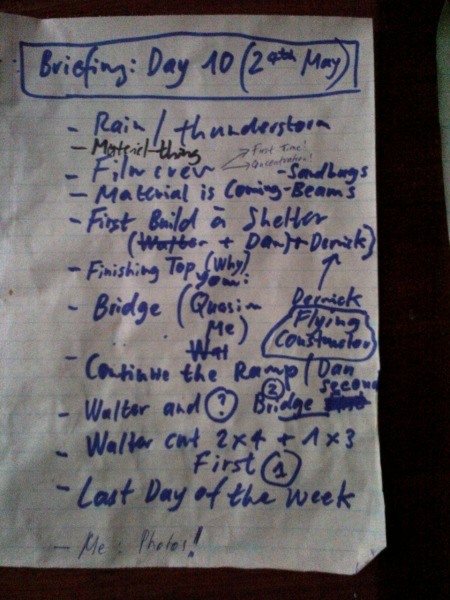 Briefing: Day 10 (24th May)
- Rain / thunderstorm
- Material thing
First Time!
- Film crew
Concentration!
- Sandbags
- Material is Coming - Beams
- First Build a Shelter
(Walter + Dan) + Derrick)
- Finishing Top (Why)
- Bridge (Quasim
Me)
Wal
Derrick
Flying
Constructor
- Continue the Ramp (Dan
second
- Walter and ? Bridge
2
- Walter cut 2x4 + 1x3
First 1
- Last Day of the Week
- Me: Photos!!